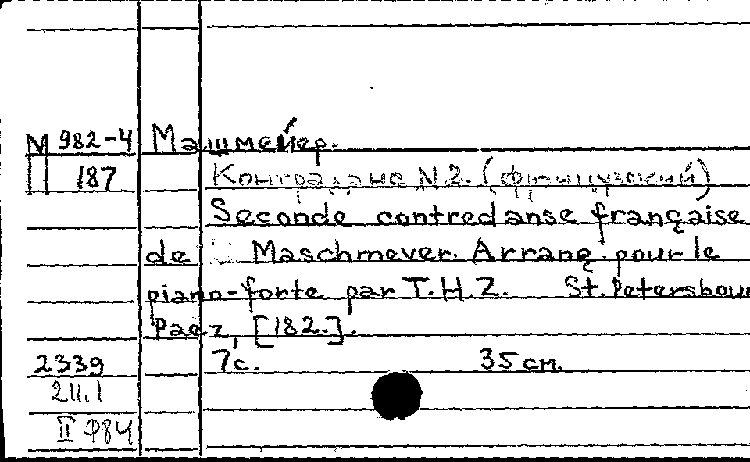 М 982-4 Машмейер.
187 Контраданс N2. (французский)
Seconde contredanse française
de Maschmeyer. Arrang. pour le
piano-forte par T.H.Z. St. Petersbour
Paez, [182.].
2339 7с. 35 см.
211.1
II 984